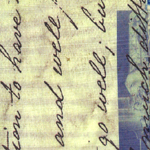 tion to have
and well
go well, bu
much diff